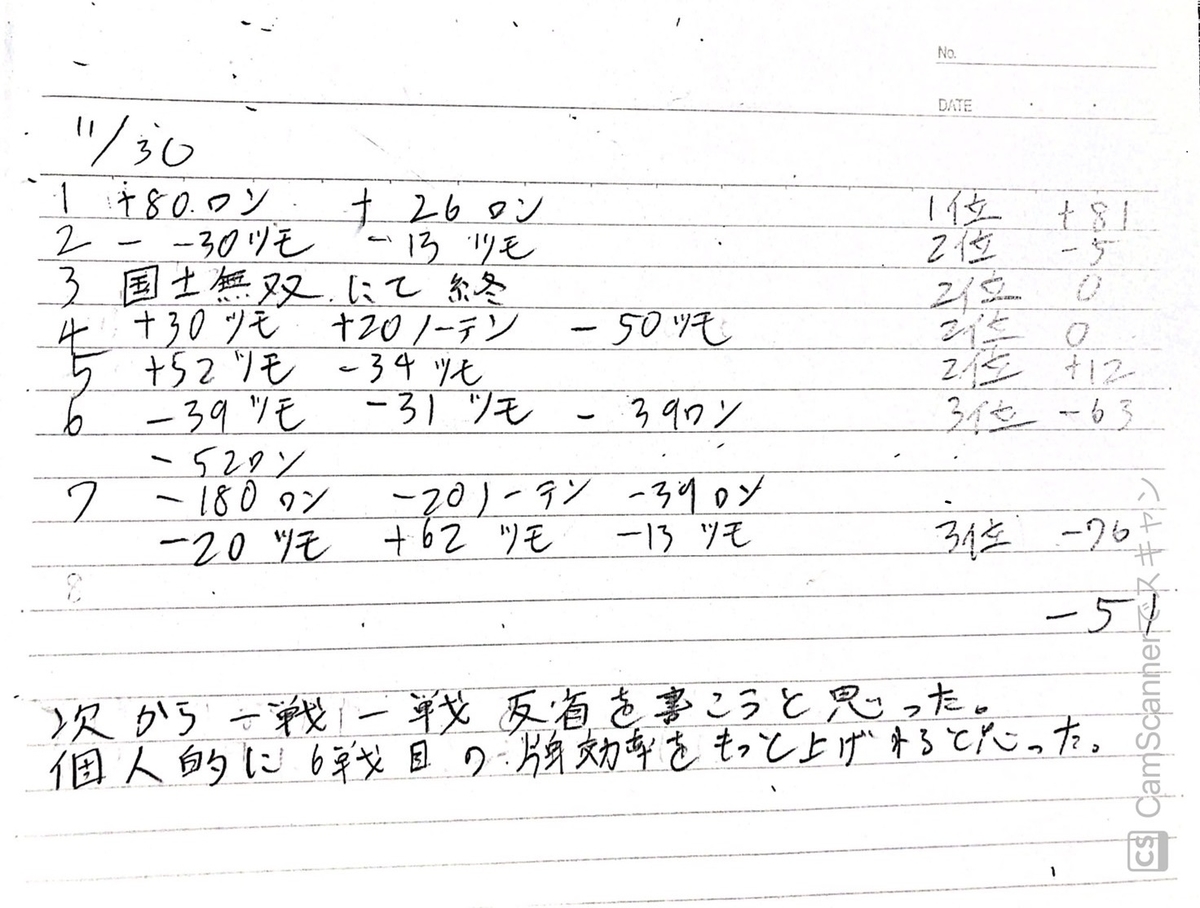 No.
DATE
11/30
1 +80ロン +26ロン 1位 +81
2 - -30ツモ -13ツモ 2位 -5
3 国士無双にて終 2位 0
4 +30ツモ +20ノーテン -50ツモ 2位 0
5 +52ツモ -34ツモ 2位 +12
6 -39ツモ -31ツモ -39ロン 3位 -63
-52ロン
7 -180ロン -20ノーテン -39ロン
-20ツモ +62ツモ -13ツモ 3位 -76
8
-51
次から一戦一戦反省を書こうと思った。
個人的に6戦目の牌効率をもっと上げれると思った。
CS CamScannerでスキャン